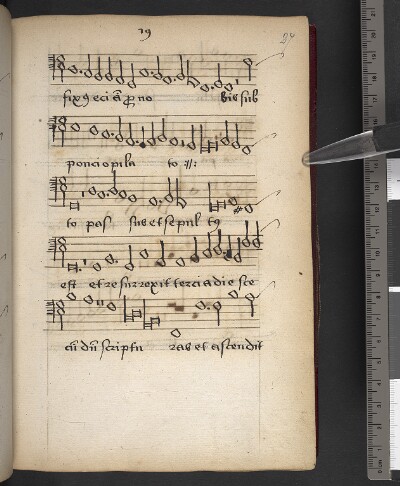 19
fixus eciā pro no bis sub
poncio pila to :||:
to pas sus et sepul tus
est et resurrexit tercia die sce
cūdū scriptu ras et ascendit